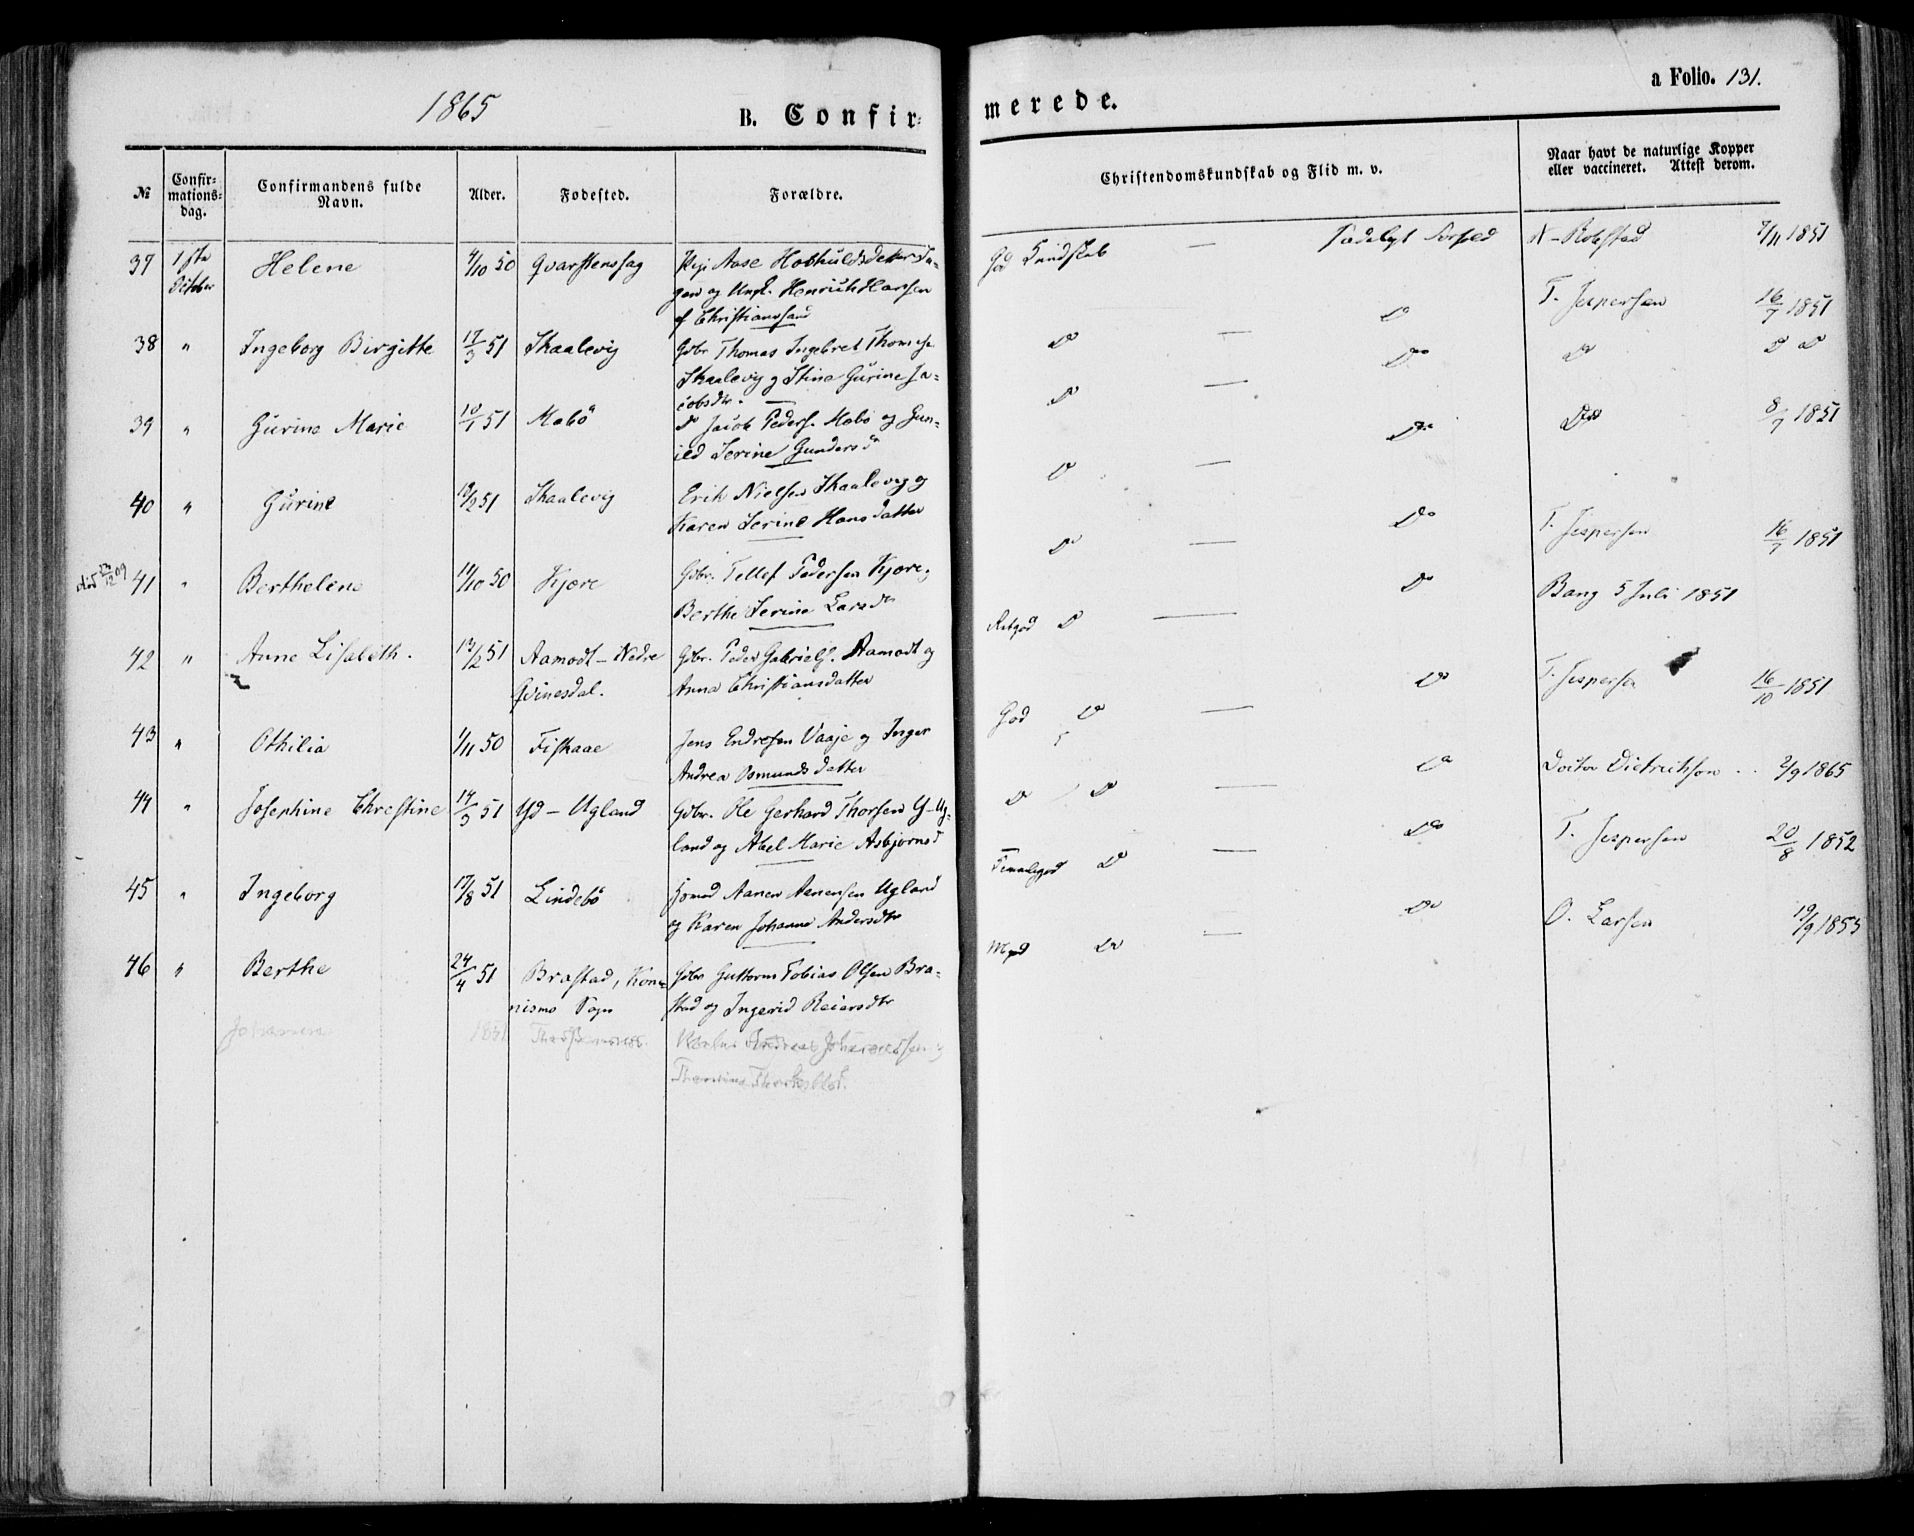 1865
B. Confir-
merede.
a Folio. 131.
№
Confir-
mations-
dag.
Confirmandens fulde
Navn.
Alder.
Fødested.
Forældre.
Christendomskundskab og Flid m. v.
Naar havt de naturlige Kopper
eller vaccineret. Attest derom.
37 1ste October Helene 4/10 50 Qvarstenssag Pige Aase
gen og Ungk. Henrich Hansen
af Christianssand
God Kundskab — Sædelyt Forhold 7/11 1851
38 " Ingeborg Birgitte 17/3 51 Skaalevig Gdbr Thomas Ingebret Thomses.
Skaalevig og Stine Gurine Ja-
cobsdtr.
Do — Do T. Jespersen 16/7 1851
39 " Gurine Marie 10/1 51 Mebö Do Jacob Peders. Mebö og Gun-
ild Serine Gundersd
Do — Do Do Do Do
40 " Gurine 12/2 51 Skaalevig Erik Nielsen Skaalevig og
Karen Serine Hansdatter
Do — Do Do 8/7 1851
død 09
41 " Berthelene 11/10 50 Kjære Gdbr. Tellef Pedersen Kjære og
Berthe Serine Larsdtr
Do — Do T. Jespersen 16/7 1851
42 " Anne Lisabeth. 13/2 51 Aamodt - Nedre
Qvinesdal.
Gdbr. Peder Gabriels. Aamodt og
Anna Christiansdatter
Do — Do Bang 5 Juli 1851
43 " Othilia 1/11 50 Fiskaae Jens Endresen Vaaje og Inger
Andrea Osmundsdatter
God Do — Do T. Jespersen 16/10 1851
44 " Josephine Christine 14/3 51 Yd - Ugland Gdbr. Ole Gerhard Thorsen Y-Ug-
land og Abel Marie Asbjørnsd
Do Do — Do Doctor Dietrichson 2/9 1865
45 " Ingeborg 17/8 51 Lindebö Aanen Aanensen Ugland
og Karen Johanne Andersdtr
Temmeliggod Do — Do T. Jespersen 20/8 1852
46 " Berthe 24/4 51 Brastad,
Sogn
Gdbr Guttorm Tobias Olsen Bra-
stad og Ingerid Reiersdtr
Do — Do O. Larsen 19/9 1853
1851 Andreas Johannessen